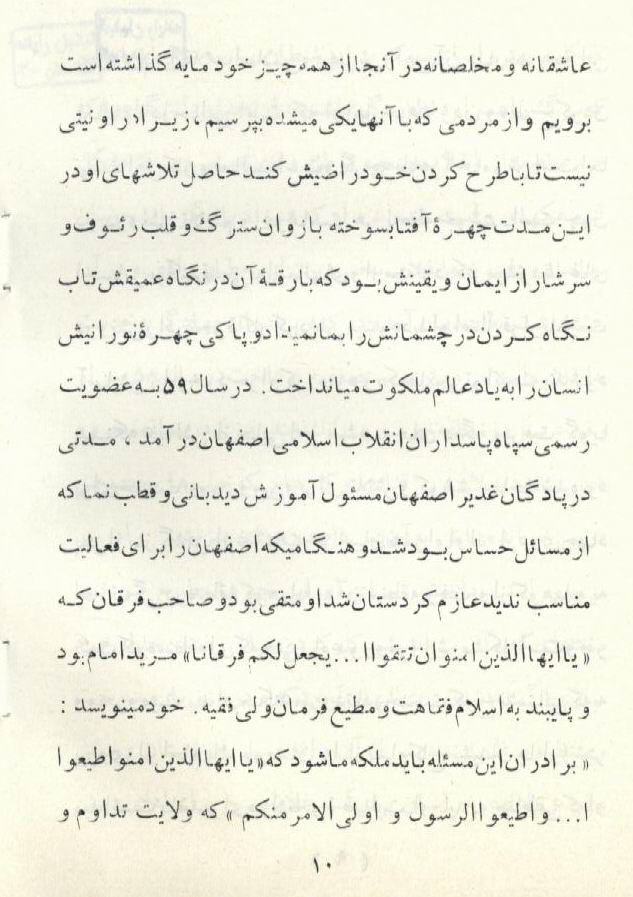 عاشقانه و مخلصانه در آنجا از همه چیز خود مایه گذاشته است
برویم و از مردمی که با آنها یکی میشده بپرسیم، زیرا در او نیتی
نیست تا با طرح کردن خود راضیش کند حاصل تلاشهای او در
این مدت چهرهٔ آفتابسوخته بازوان سترگ و قلب رئوف و
سرشار از ایمان و یقینش بود که بارقهٔ آن در نگاه عمیقش تاب
نگاه کردن در چشمانش را بما نمیداد و پاکی چهرهٔ نورانیش
انسان را به یاد عالم ملکوت میانداخت. در سال ۵۹ به عضویت
رسمی سپاه پاسداران انقلاب اسلامی اصفهان در آمد، مدتی
در پادگان غدیر اصفهان مسئول آموزش دیدبانی و قطب نما که
از مسائل حساس بود شد و هنگامیکه اصفهان را برای فعالیت
مناسب ندید عازم کردستان شد او متقی بود و صاحب فرقان که
«یا ایها الذین امنو ان تتقوا ا... یجعل لکم فرقانا» مرید امام بود
و پایبند به اسلام فقاهت و مطیع فرمان ولی فقیه. خود مینویسد:
«برادران این مسئله باید ملکه ما شود که «یا ایها الذین امنو اطیعوا
ا... و اطیعوا الرسول و اولی الامر منکم» که ولایت تداوم و
۱۰